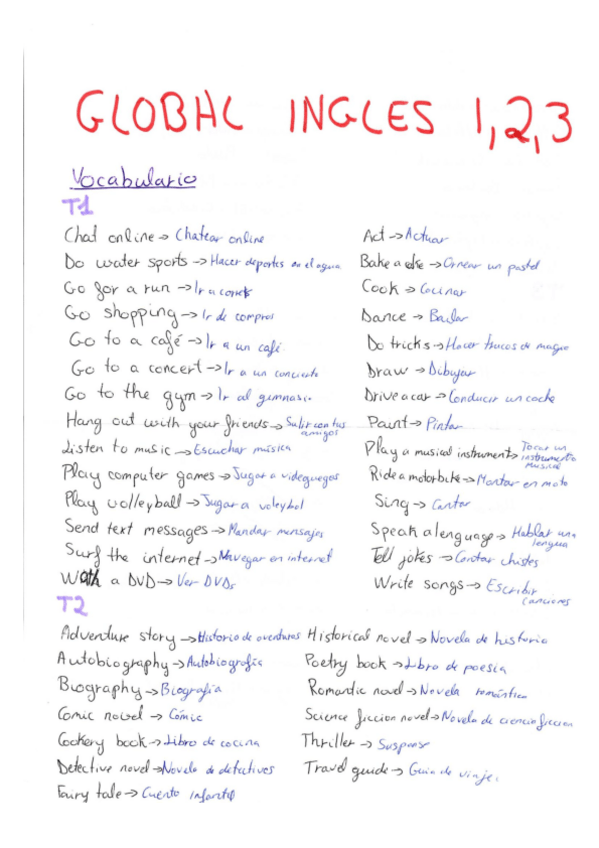 GLOBAL INGLES 1,2,3
Vocabulario
T1
Chat online → Chatear online
Do water sports → Hacer deportes en el agua
Go for a run → Ir a correr
Go shopping → Ir de compras
Go to a café → Ir a un café
Go to a concert → Ir a un concierto
Go to the gym → Ir al gimnasio
Hang out with your friends → Salir con tus amigos
Listen to music → Escuchar música
Play computer games → Jugar a videguegos
Play volleyball → Jugar a voleybol
Send text messages → Mandar mensajes
Surf the internet → Navegar en internet
Wath a DVD → Ver DVDs
Act → Actuar
Bake a cake → Ornear un pastel
Cook → Cocinar
Dance → Bailar
Do tricks → Hacer trucos de magia
Draw → Dibujar
Drive a car → Conducir un coche
Paint → Pintar
Play a musical instrument → Tocar un instrumento musical
Ride a motorbike → Montar en moto
Sing → Cantar
Speak a lenguage → Hablar una lengua
Tell jokes → Contar chistes
Write songs → Escribir canciones
T2
Adventure story → Historia de aventuras
Autobiography → Autobiografía
Biography → Biografía
Comic → Cómic
Cookery book → Libro de cocina
Detective novel → Novela de detectives
Fairy tale → Cuento infantil
Historical novel → Novela de historia
Poetry book → Libro de poesia
Romantic novel → Novela romántica
Science ficcion novel → Novela de ciencia ficcion
Thriller → Suspense
Travel guide → Guia de viaje.